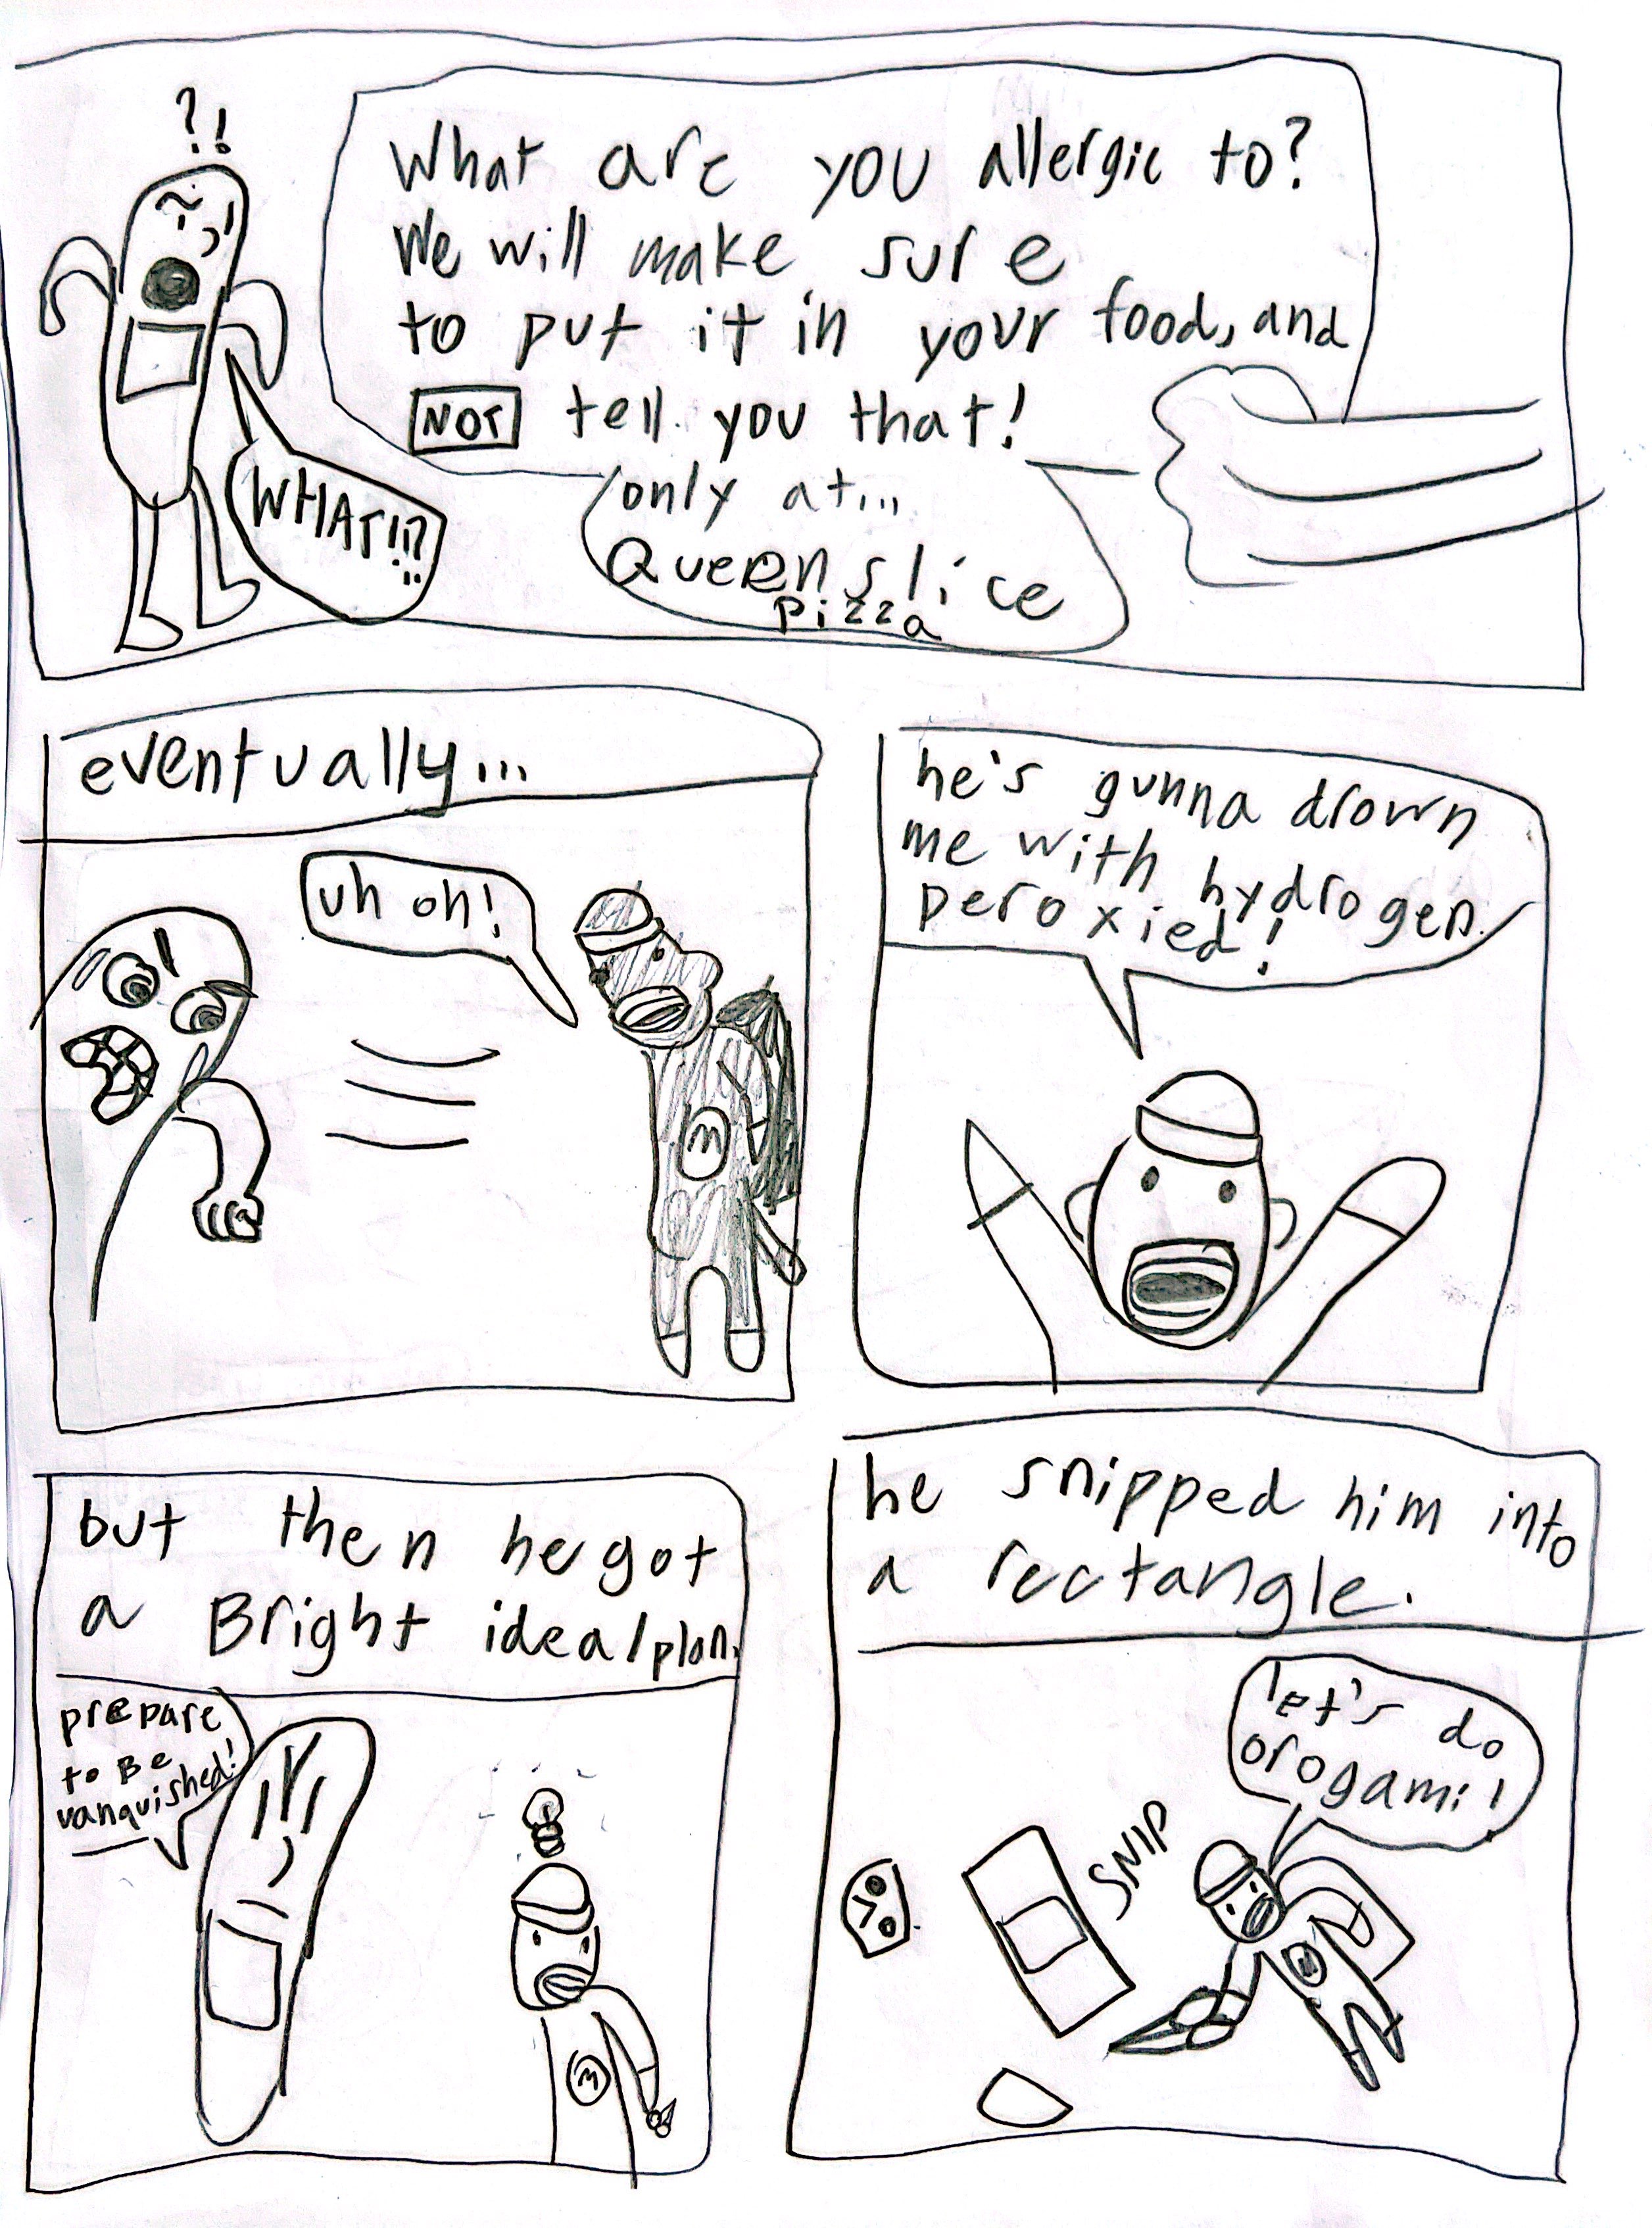 ?!
What are you allergic to?
We will make sure
to put it in your food, and
NOT tell you that!
only at...
Queen slice
pizza
WHAT!!??
eventually...
uh oh!
m
he's gunna drown
me with hydrogen
peroxied!
but then he got
a Bright idea/plan.
prepare
to Be
vanquished!
m
he snipped him into
a rectangle.
let's do
orogami!
SNIP